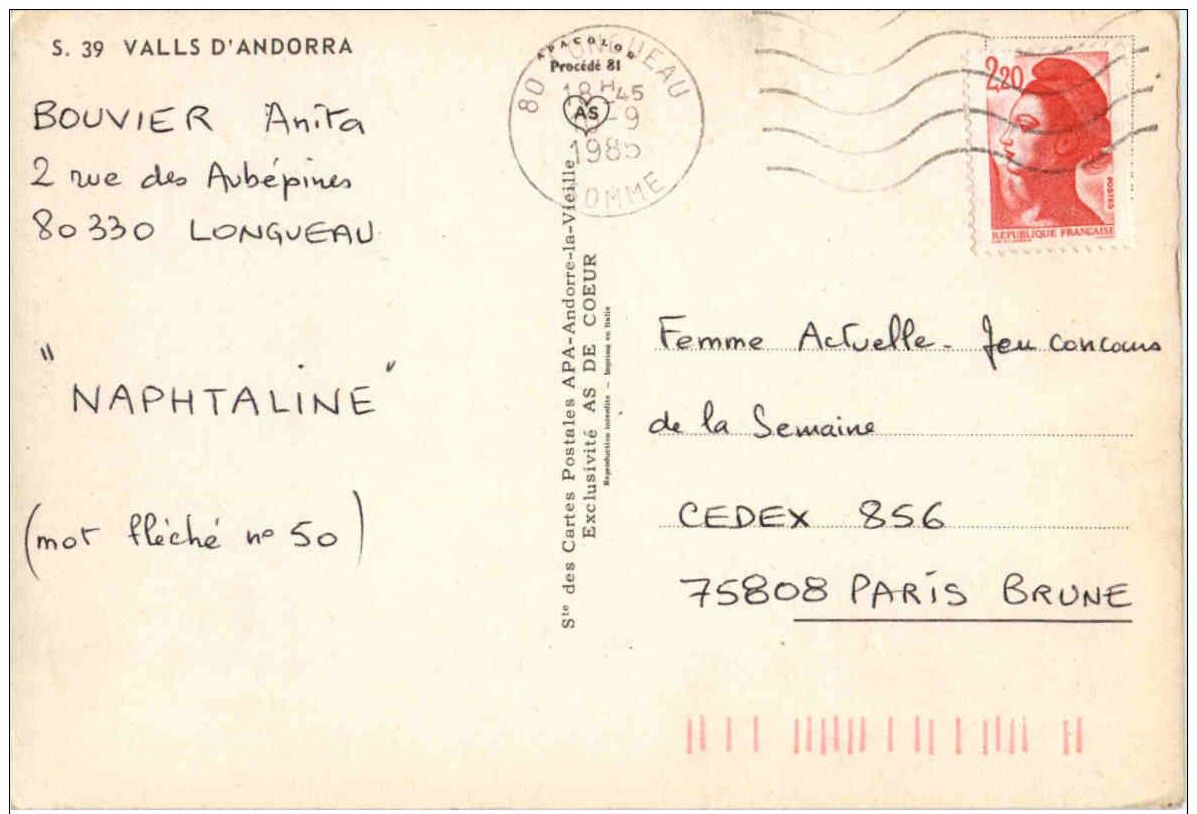 S. 39 VALLS D'ANDORRA
BOUVIER Anita
2 rue des Aubépines
80330 LONGUEAU
"NAPHTALINE"
(mot fléché n° 50)
APACOLOR
Procédé 81
AS
80 LONGUEAU
18H45
-9
1985
SOMME
Sté des Cartes Postales APA-Andorre-la-Vieille
Exclusivité AS DE COEUR
Reproduction interdite - Imprimé en Italie
2,20
POSTES
REPUBLIQUE FRANÇAISE
Femme Actuelle - Jeu concours
de la Semaine
CEDEX 856
75808 PARIS BRUNE